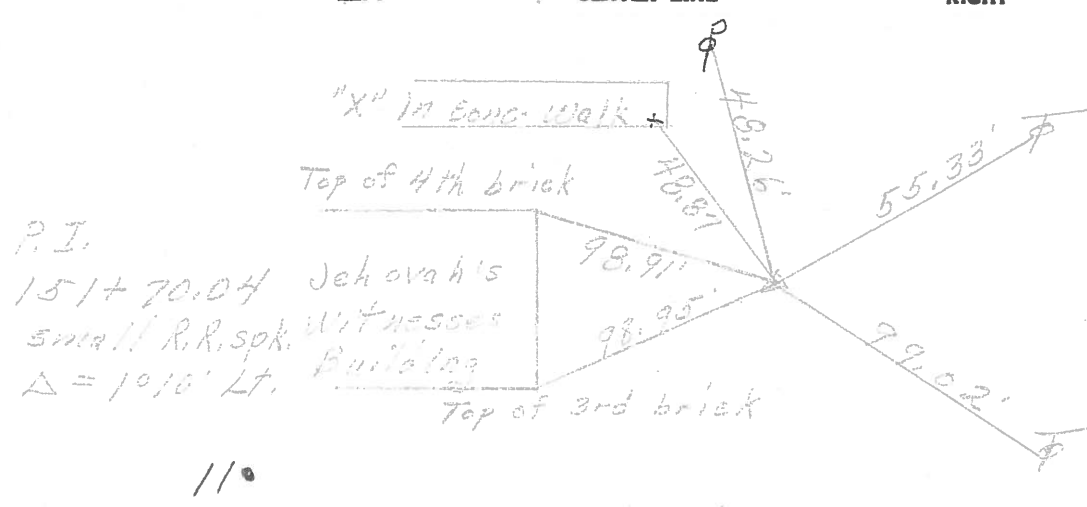 CENTER LINE
RIGHT
"X" In Conc. Walk
48.26'
48.87
55.33'
Top of 4th brick
98.91'
P.I.
151+70.04
small R.R. spk.
Δ = 1°16' Lt.
Jehovah's
Witnesses
Building
98.95'
99.02'
Top of 3rd brick
110